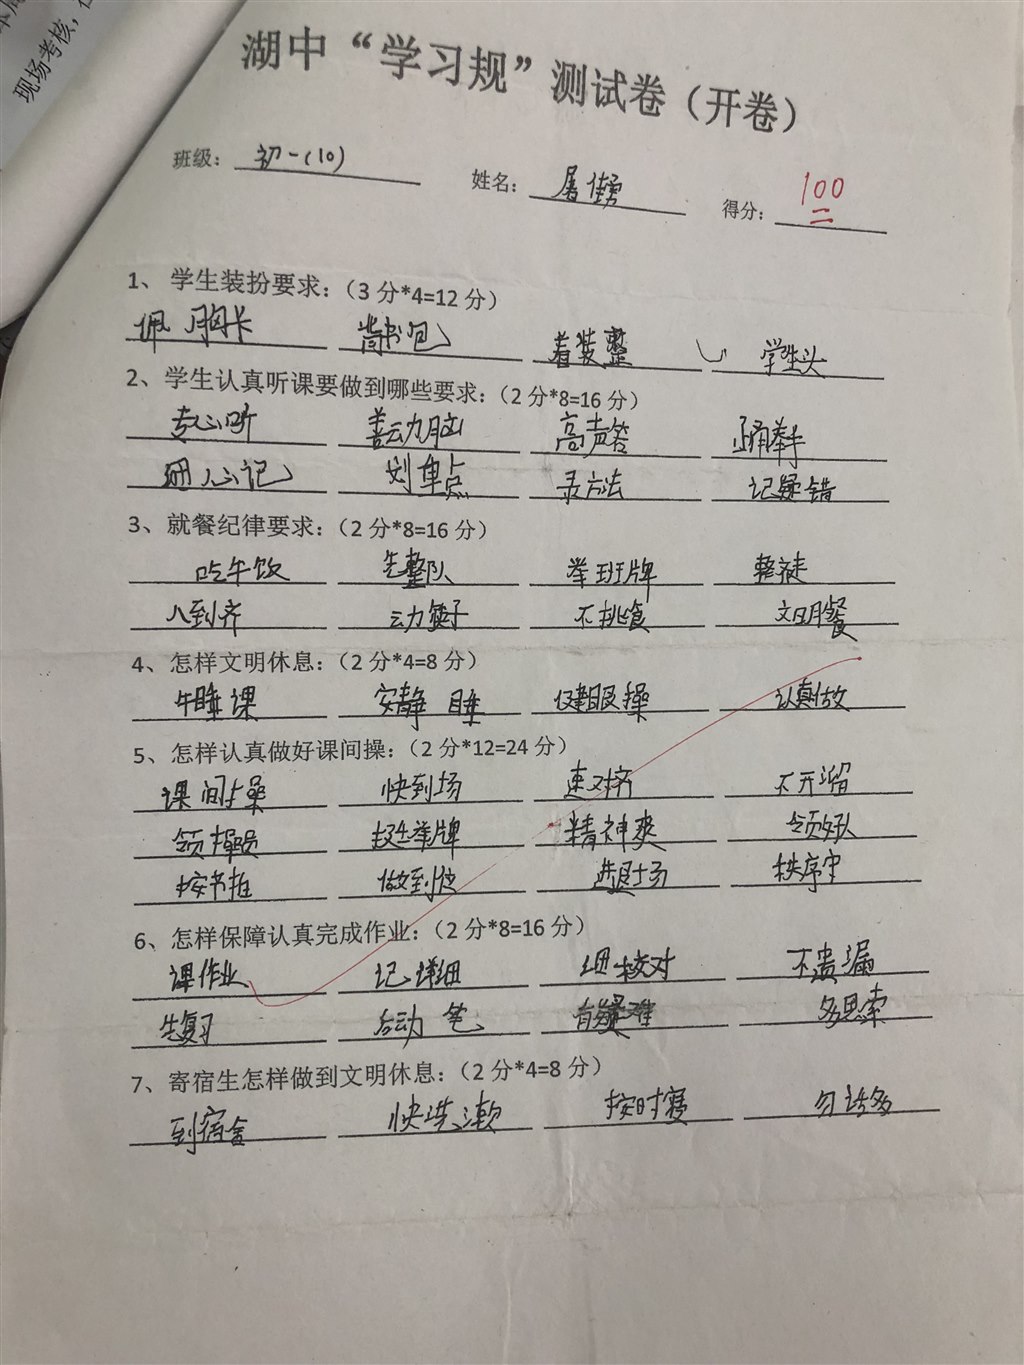 现场考核，
湖中“学习规”测试卷（开卷）
班级：初一(10) 姓名： 得分：100
1、 学生装扮要求：（3 分*4=12 分）
佩胸卡 背书包 着装整 学生头
2、学生认真听课要做到哪些要求：（2 分*8=16 分）
专心听 善动脑 高声答 勇举手
细心记 划重点 录方法 记疑错
3、就餐纪律要求：（2 分*8=16 分）
吃午饭 先整队 举班牌
人到齐 动筷子 不挑食 文明餐
4、怎样文明休息：（2 分*4=8 分）
午睡课 安静睡 健眼操 认真做
5、怎样认真做好课间操：（2 分*12=24 分）
课间操 快到场 速对齐 不开溜
领操员 举牌 精神爽 领好队
按节拍 做到位 进退场 秩序守
6、怎样保障认真完成作业：（2 分*8=16 分）
课作业 记详细 细核对 不遗漏
先复习 后动笔 有疑难 多思索
7、寄宿生怎样做到文明休息：（2 分*4=8 分）
到宿舍 快洗漱 按时寝 勿话多